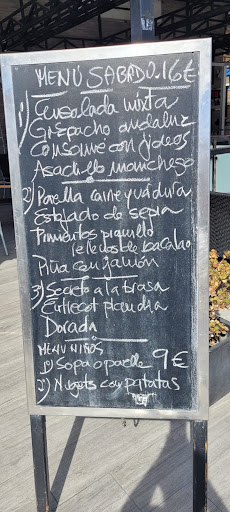 MENÚ SABADO. 16€
1) Ensalada mixta
Gazpacho andaluz
Consome con fideos
Asadillo manchego
2) Paella carne y verdura
Estofado de sepia
Pimientos piquillo
rellenos de bacalao
Piña con jamón
3) Secreto a la brasa
Entrecot plancha
Dorada
MENU NIÑOS 9€
1º) Sopa o paella
2º) Nugets con patatas